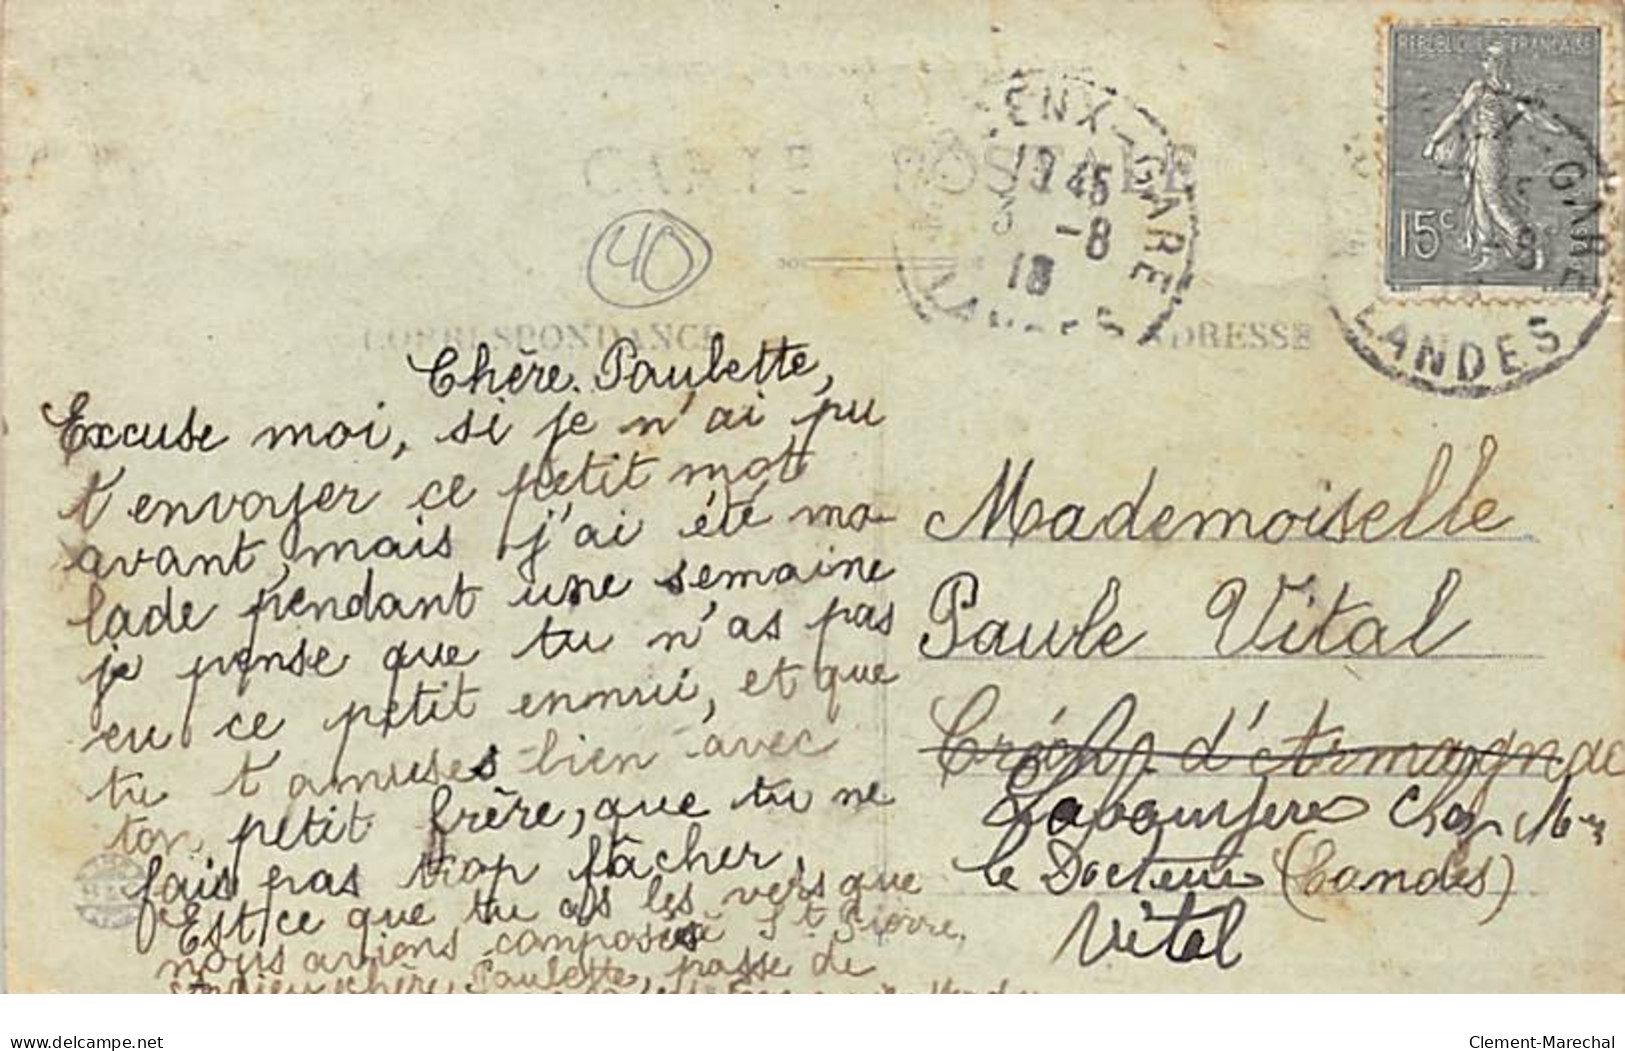 CARTE POSTALE
40
ENX-GARE
19 45
-8
18
LANDES
REPUBLIQUE FRANÇAISE
15c
GARE
LANDES
CORRESPONDANCE
ADRESSE
Chère Paulette,
Excuse moi, si je n'ai pu
t'envoyer ce petit mot
avant, mais j'ai été ma-
lade pendant une semaine
je pense que tu n'as pas
eu ce petit ennui, et que
tu t'amuses bien avec
ton petit frère, que tu ne
fais pas trop fâcher,
Est ce que tu as les vers que
nous avions composés à St Pierre,
chère Paulette, passe de
Mademoiselle
Paule Vital
d'Armagnac
Labouheyre chez Mr
le Docteur (Landes)
Vital
delcampe.net
Clement-Marechal